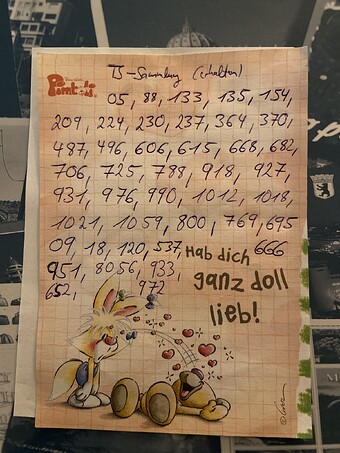 TS-Sammlung (erhalten)
Pimboli
05, 88, 133, 135, 154,
209, 224, 230, 237, 364, 370,
487, 496, 606, 615, 668, 682,
706, 725, 788, 918, 927,
931, 976, 990, 1012, 1018,
1021, 1059, 800, 769, 695
09, 18, 120, 537, 666
Hab dich
951, 8056, 933,
ganz doll
652, 972
lieb!